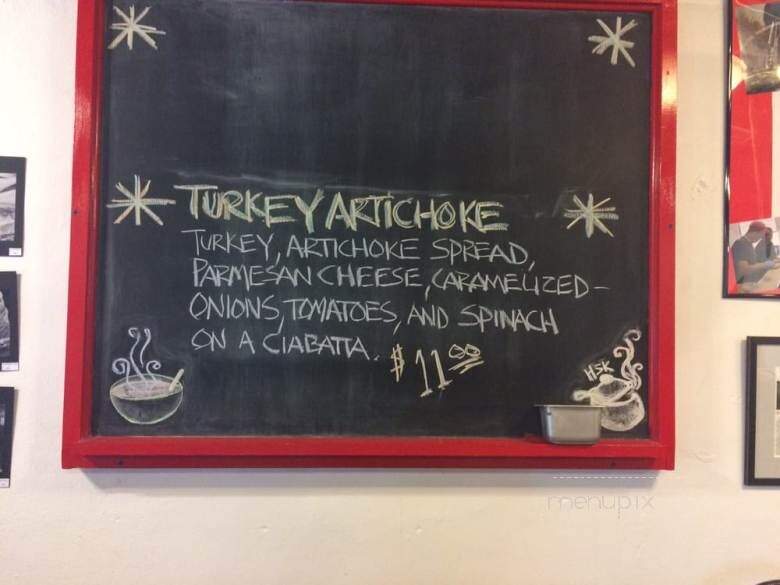 TURKEY ARTICHOKE
TURKEY, ARTICHOKE SPREAD,
PARMESAN CHEESE, CARAMELIZED-
ONIONS, TOMATOES, AND SPINACH
ON A CIABATTA. $11.00
HSK
menupix